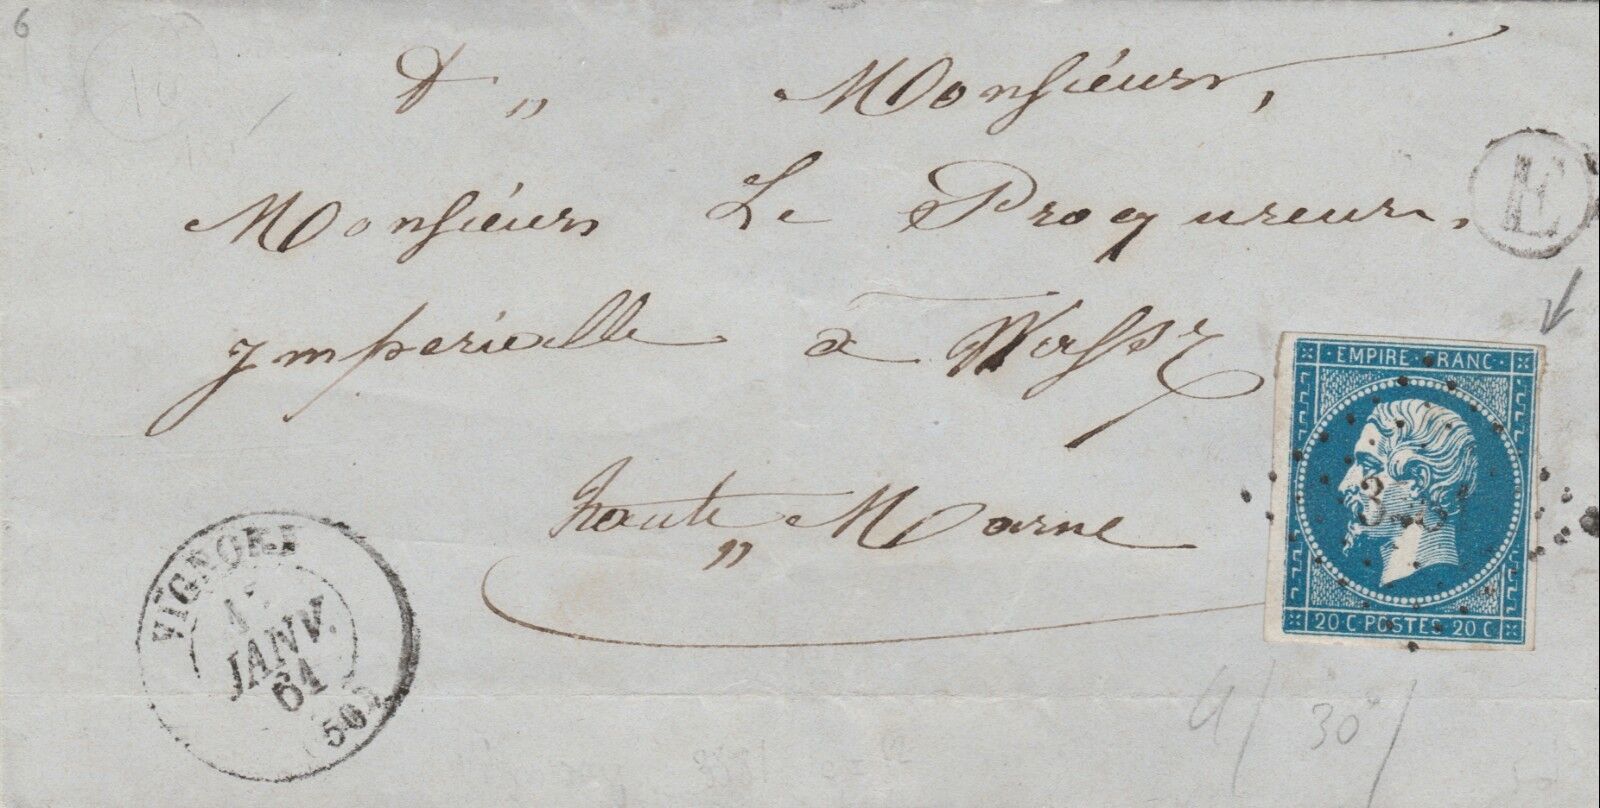 6
A " Monsieur,
Monsieur Le Proqureur,
imperialle à Wassy
haute " Marne
E
EMPIRE FRANC
20 C POSTES 20 C
VIGNORY
JANV.
61
(50)
30